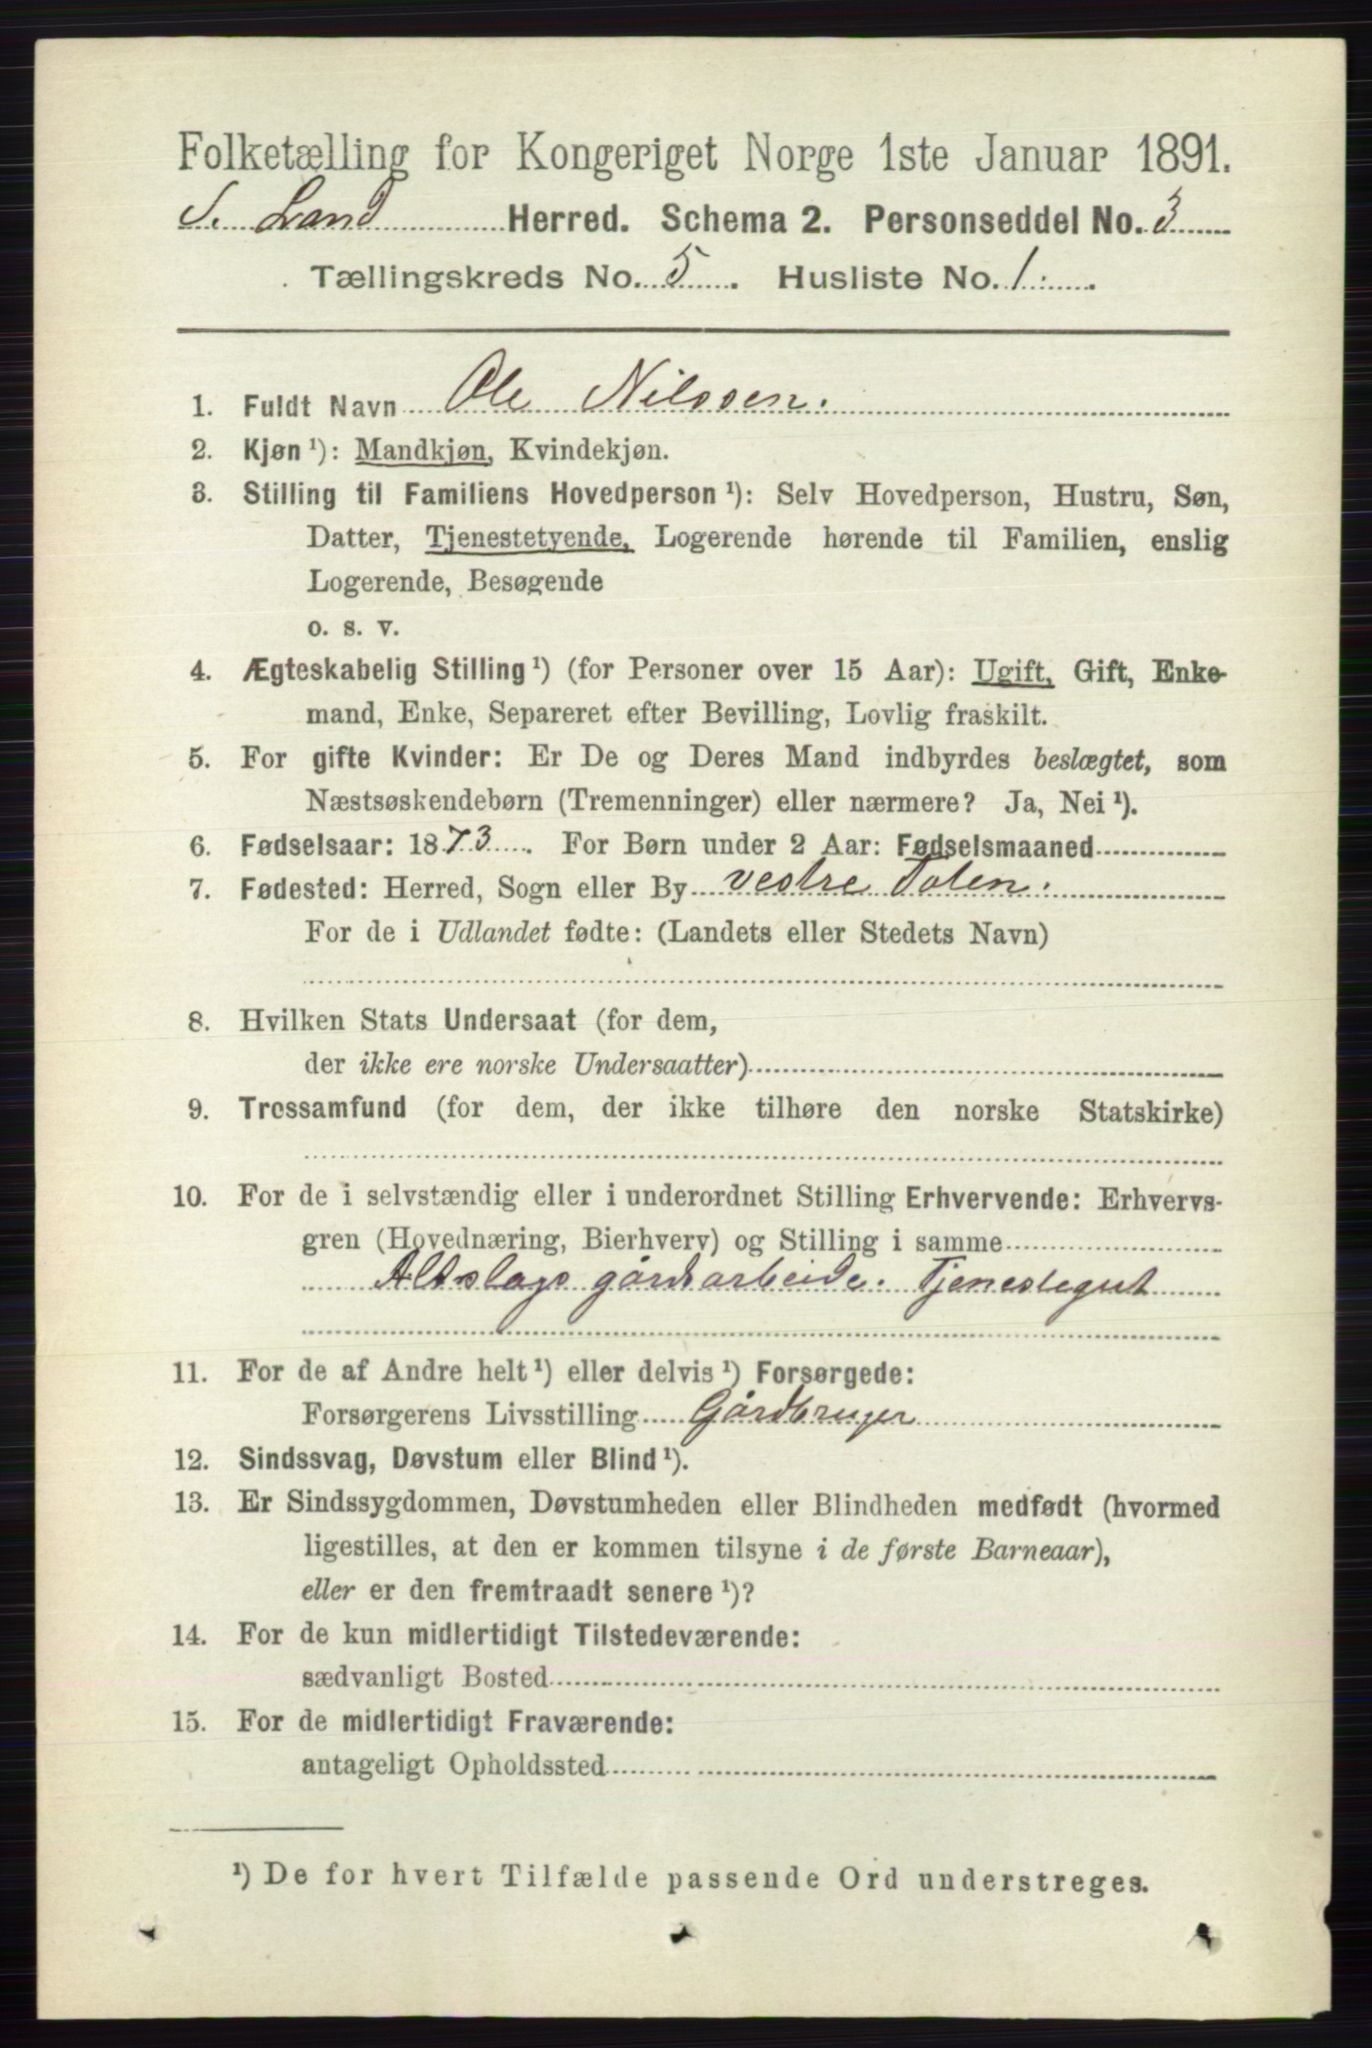 Folketælling for Kongeriget Norge 1ste Januar 1891.
S. Land Herred. Schema 2. Personseddel No. 3
Tællingskreds No. 5. Husliste No. 1.
1. Fuldt Navn Ole Nilssen.
2. Kjøn ¹): Mandkjøn, Kvindekjøn.
3. Stilling til Familiens Hovedperson ¹): Selv Hovedperson, Hustru, Søn,
Datter, Tjenestetyende, Logerende hørende til Familien, enslig
Logerende, Besøgende
o. s. v.
4. Ægteskabelig Stilling ¹) (for Personer over 15 Aar): Ugift, Gift, Enke-
mand, Enke, Separeret efter Bevilling, Lovlig fraskilt.
5. For gifte Kvinder: Er De og Deres Mand indbyrdes beslægtet, som
Næstsøskendebørn (Tremenninger) eller nærmere? Ja, Nei ¹).
6. Fødselsaar: 1873. For Børn under 2 Aar: Fødselsmaaned
7. Fødested: Herred, Sogn eller By vestre Toten.
For de i Udlandet fødte: (Landets eller Stedets Navn)
8. Hvilken Stats Undersaat (for dem,
der ikke ere norske Undersaatter)
9. Trossamfund (for dem, der ikke tilhøre den norske Statskirke)
10. For de i selvstændig eller i underordnet Stilling Erhvervende: Erhvervs-
gren (Hovednæring, Bierhverv) og Stilling i samme
Altslags gårdsarbeide. Tjenestegut
11. For de af Andre helt ¹) eller delvis ¹) Forsørgede:
Forsørgerens Livsstilling Gårdbruger
12. Sindssvag, Døvstum eller Blind ¹).
13. Er Sindssygdommen, Døvstumheden eller Blindheden medfødt (hvormed
ligestilles, at den er kommen tilsyne i de første Barneaar),
eller er den fremtraadt senere ¹)?
14. For de kun midlertidigt Tilstedeværende:
sædvanligt Bosted
15. For de midlertidigt Fraværende:
antageligt Opholdssted
¹) De for hvert Tilfælde passende Ord understreges.